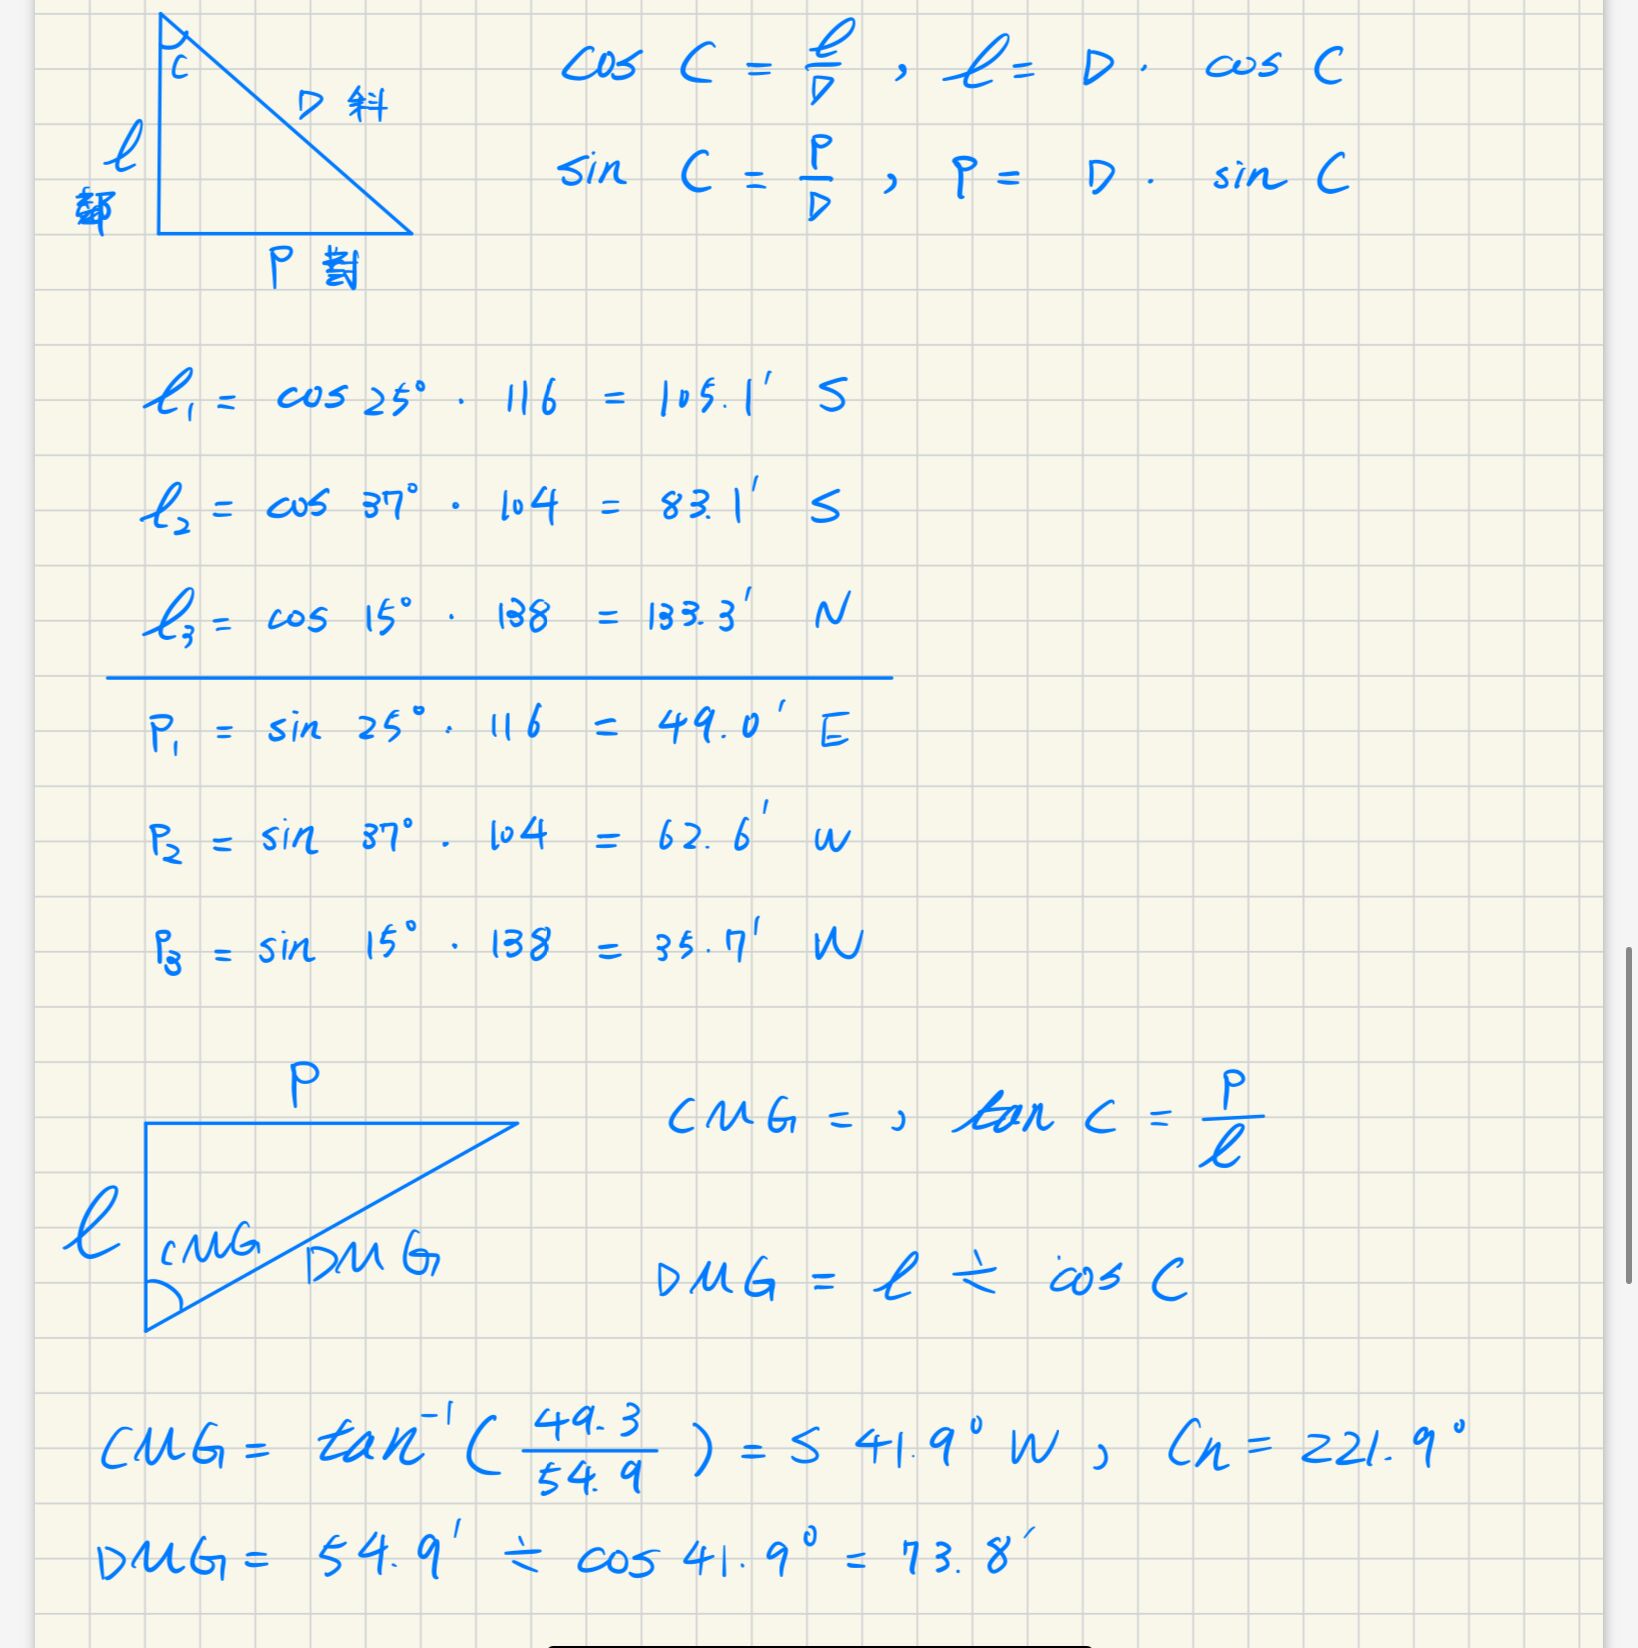 cos C = ℓ/D , ℓ = D · cos C
C
D 斜
ℓ
鄰
sin C = P/D , P = D · sin C
P 對
ℓ₁ = cos 25° · 116 = 105.1′ S
ℓ₂ = cos 37° · 104 = 83.1′ S
ℓ₃ = cos 15° · 138 = 133.3′ N
P₁ = sin 25° · 116 = 49.0′ E
P₂ = sin 37° · 104 = 62.6′ W
P₃ = sin 15° · 138 = 35.7′ W
P
CMG = , tan C = P/ℓ
ℓ
CMG
DMG
DMG = ℓ ÷ cos C
CMG = tan⁻¹ ( 49.3/54.9 ) = S 41.9° W , Cn = 221.9°
DMG = 54.9′ ÷ cos 41.9° = 73.8′